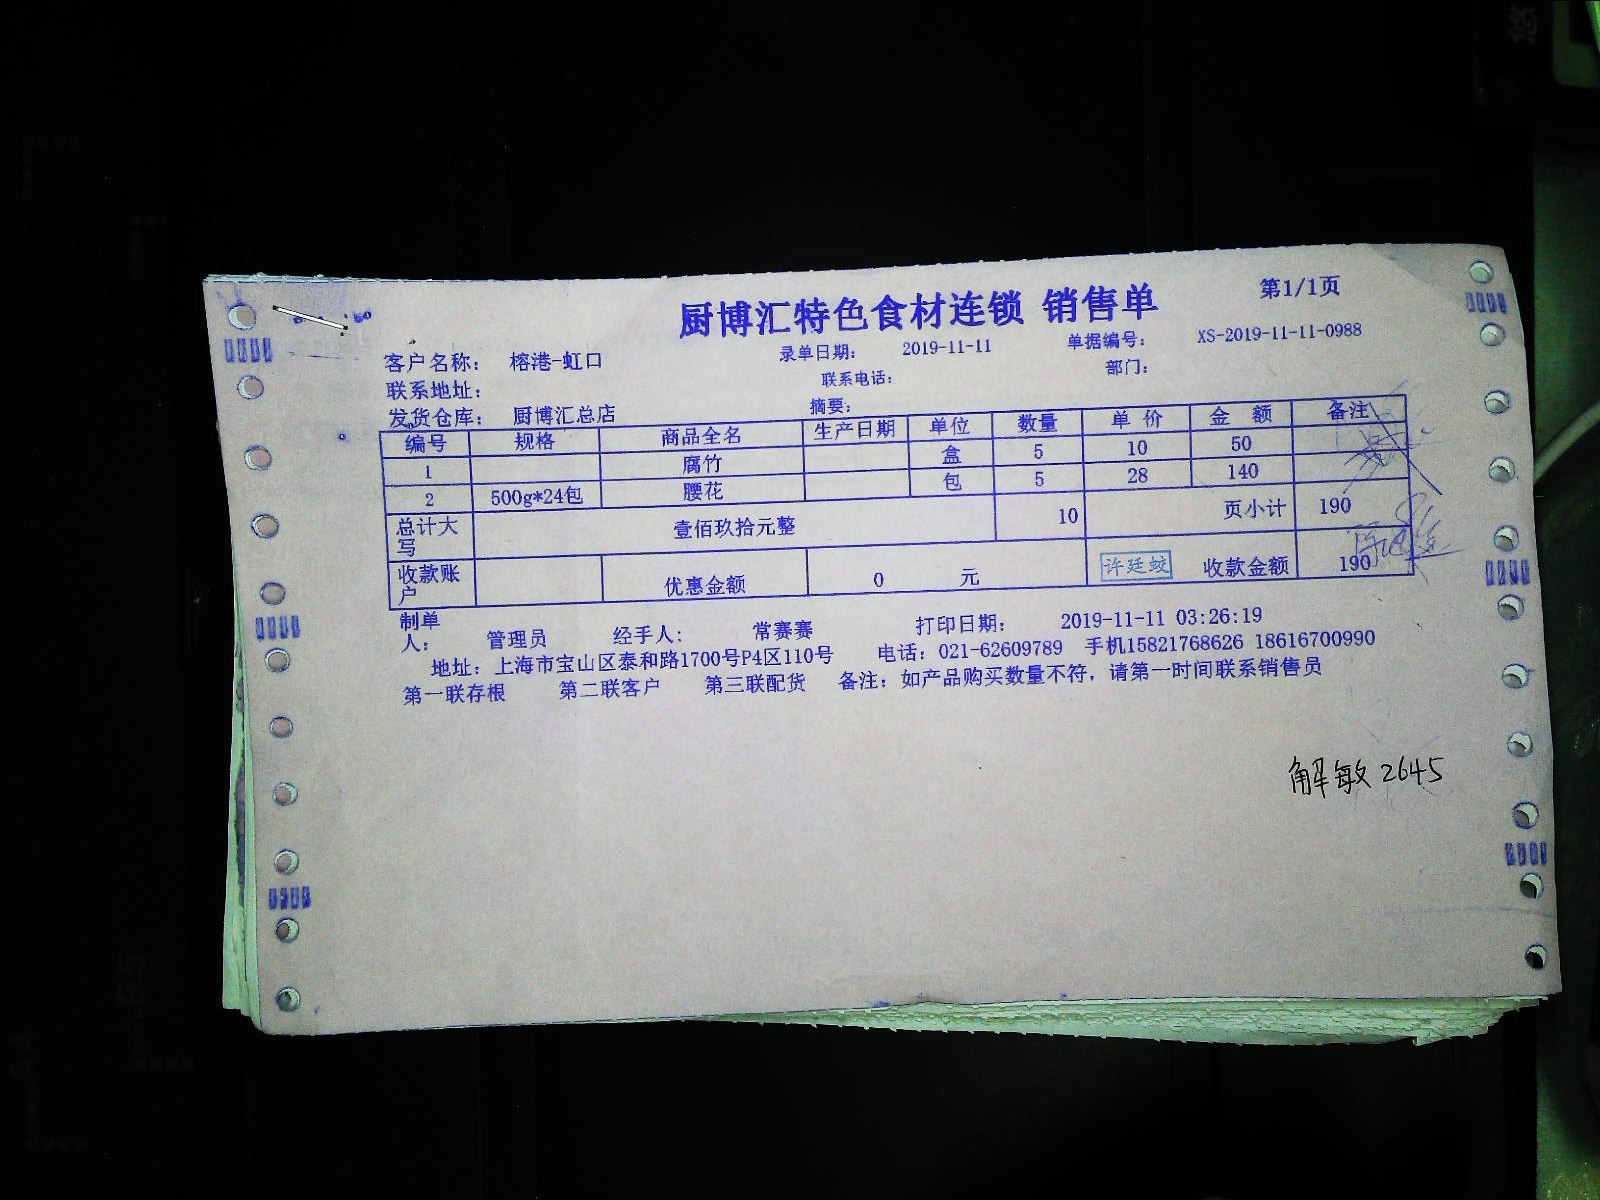 厨博汇特色食材连锁 销售单 第1/1页
客户名称: 榕港-虹口 录单日期: 2019-11-11 单据编号: XS-2019-11-11-0988
联系地址: 联系电话: 部门:
发货仓库: 厨博汇总店 摘要:
编号 规格 商品全名 生产日期 单位 数量 单价 金额 备注
1 腐竹 盒 5 10 50
2 500g*24包 腰花 包 5 28 140
总计大写 壹佰玖拾元整 10 页小计 190
收款账户 优惠金额 0 元 许廷蛟 收款金额 190
制单人: 管理员 经手人: 常赛赛 打印日期: 2019-11-11 03:26:19
地址: 上海市宝山区泰和路1700号P4区110号 电话: 021-62609789 手机15821768626 18616700990
第一联存根 第二联客户 第三联配货 备注: 如产品购买数量不符, 请第一时间联系销售员
解敏 2645